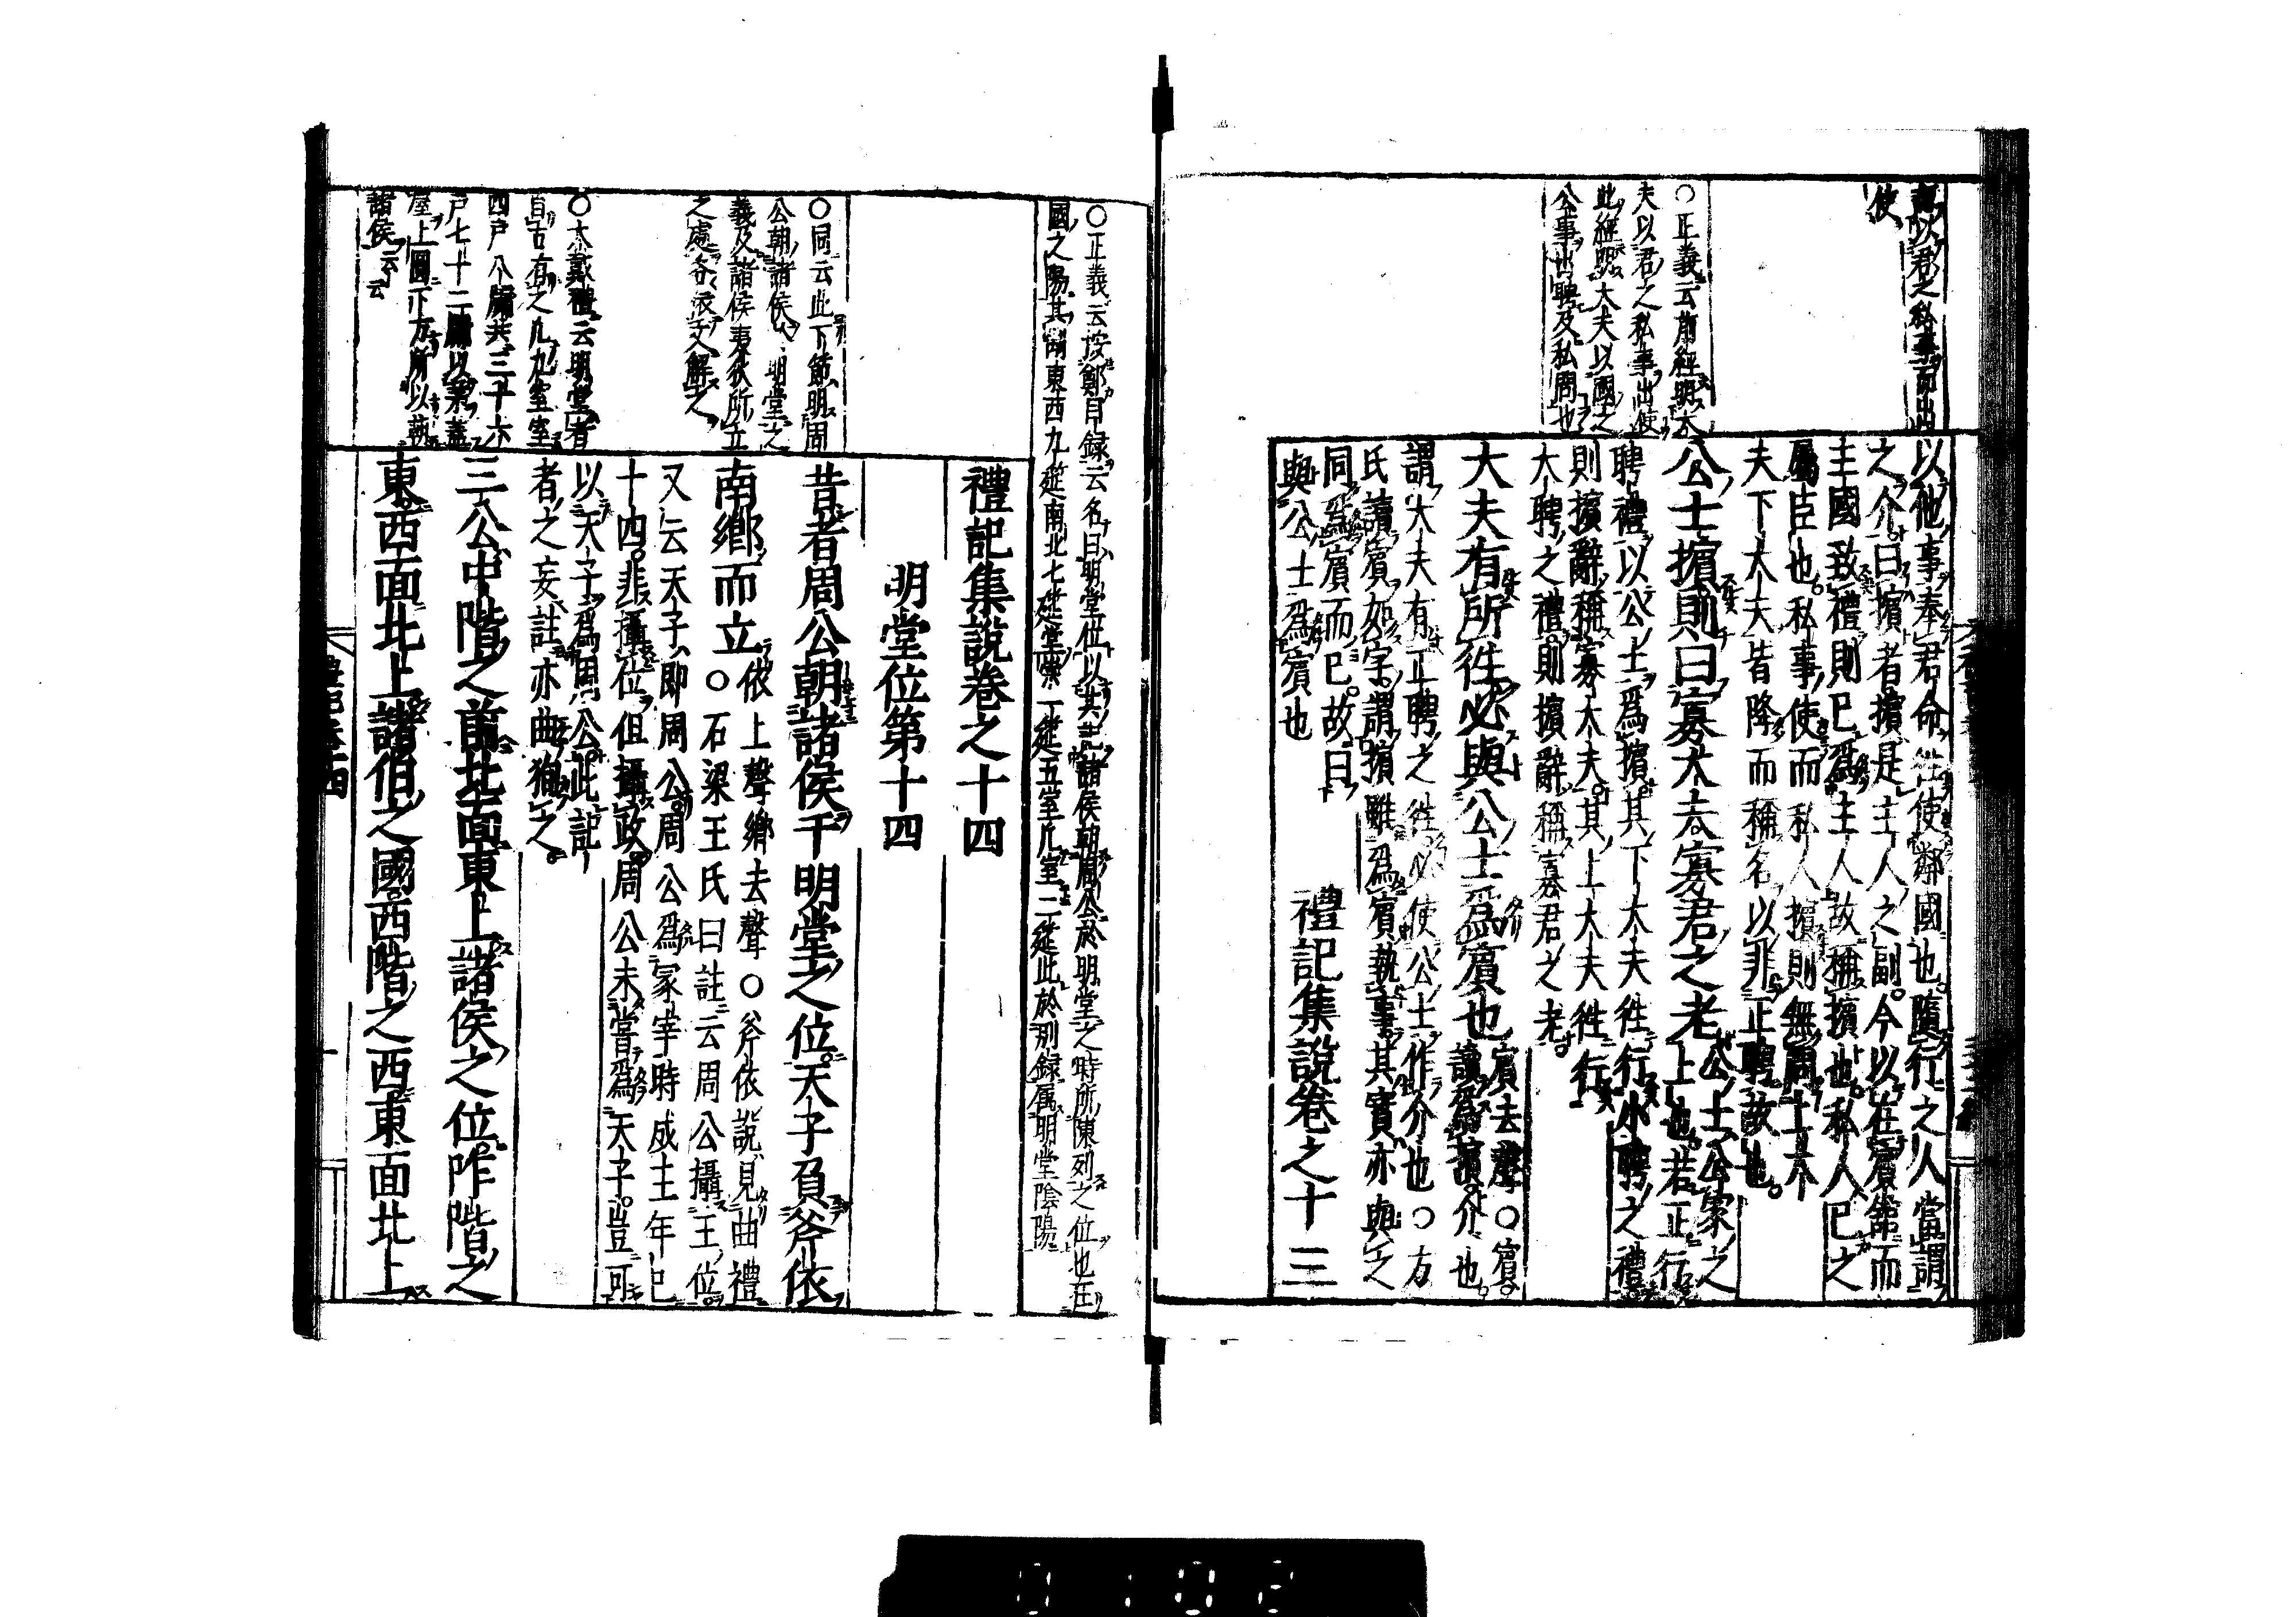 以他事奉君命往使鄰國也隨行之人當謂
之介曰擯者擯是主人之副今以在賓館而
主國致禮則已爲主人故稱擯也私人已之
屬臣也私事使而私人擯則無問上下
夫下大夫皆降而稱名以非正聘故也
公士擯則曰寡大夫寡君之老
公士公家之
上也若正行
聘禮以公士爲擯其下大夫往行小聘之禮
則擯辭稱寡大夫其上大夫往行
大聘之禮則擯辭稱寡君之老
大夫有所往必與公士爲賓也
賓去聲○賓
讀爲擯介也
謂大夫有正聘之往必使公士作介也○方
氏讀賓如字謂擯雖爲賓執事其實亦與之
同爲賓而已故曰
與公士爲賓也
禮記集說卷之十三
使
○正義云前經明大
夫以君之私事出使
此經明大夫以國之
公事出聘及私問也
○正義云按鄭目録云名曰明堂位以其記諸侯朝周公於明堂之時所陳列之位也在
國之陽其制東西九筵南北七筵堂崇一筵五室凡室二筵此於別録属明堂陰陽
禮記集說卷之十四
明堂位第十四
昔者周公朝諸侯于明堂之位天子負斧依
南鄉而立
依上聲鄉去聲○斧依說見曲禮
○石梁王氏曰註云周公攝王位
又云天子即周公周公爲冢宰時成王年已
十四非攝位但攝政周公未嘗爲天子豈可
以天子爲周公此記
者之妄註亦曲徇之
三公中階之前北面東上諸侯之位阼階之
東西面北上諸伯之國西階之西東面北上
○同云此下節明周
公朝諸侯明堂之
義及諸侯夷狄所立
之處各依文解之
○大戴禮云明堂者
自古有之凡九室室
四戶八牖共三十六
戶七十二牖以茅蓋
屋上圓下方所以朝
諸侯云云
0102